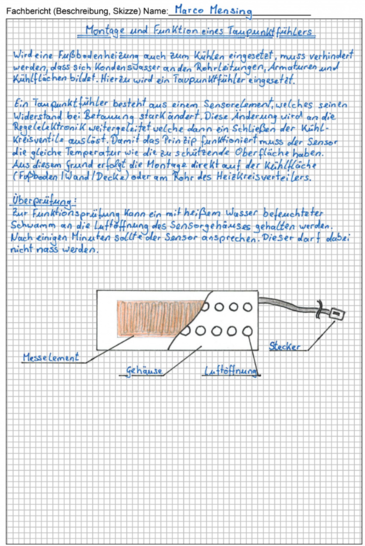 Fachbericht (Beschreibung, Skizze) Name: Marco Mensing
Montage und Funktion eines Taupunktfühlers
Wird eine Fußbodenheizung auch zum Kühlen eingesetzt, muss verhindert
werden, dass sich Kondenswasser an den Rohrleitungen, Armaturen und
Kühlflächen bildet. Hierzu wird ein Taupunktfühler eingesetzt.
Ein Taupunktfühler besteht aus einem Sensorelement, welches seinen
Widerstand bei Betauung stark ändert. Diese Änderung wird an die
Regelelektronik weitergeleitet welche dann ein Schließen der Kühl-
kreisventile auslöst. Damit das Prinzip funktioniert muss der Sensor
die gleiche Temperatur wie die zu schützende Oberfläche haben.
Aus diesem Grund erfolgt die Montage direkt auf der Kühlfläche
(Fußboden/Wand/Decke) oder am Rohr des Heizkreisverteilers.
Überprüfung:
Zur Funktionsprüfung kann ein mit heißem Wasser befeuchteter
Schwamm an die Luftöffnung des Sensorgehäuses gehalten werden.
Nach einigen Minuten sollte der Sensor ansprechen. Dieser darf dabei
nicht nass werden.
Messelement
Gehäuse
Luftöffnung
Stecker